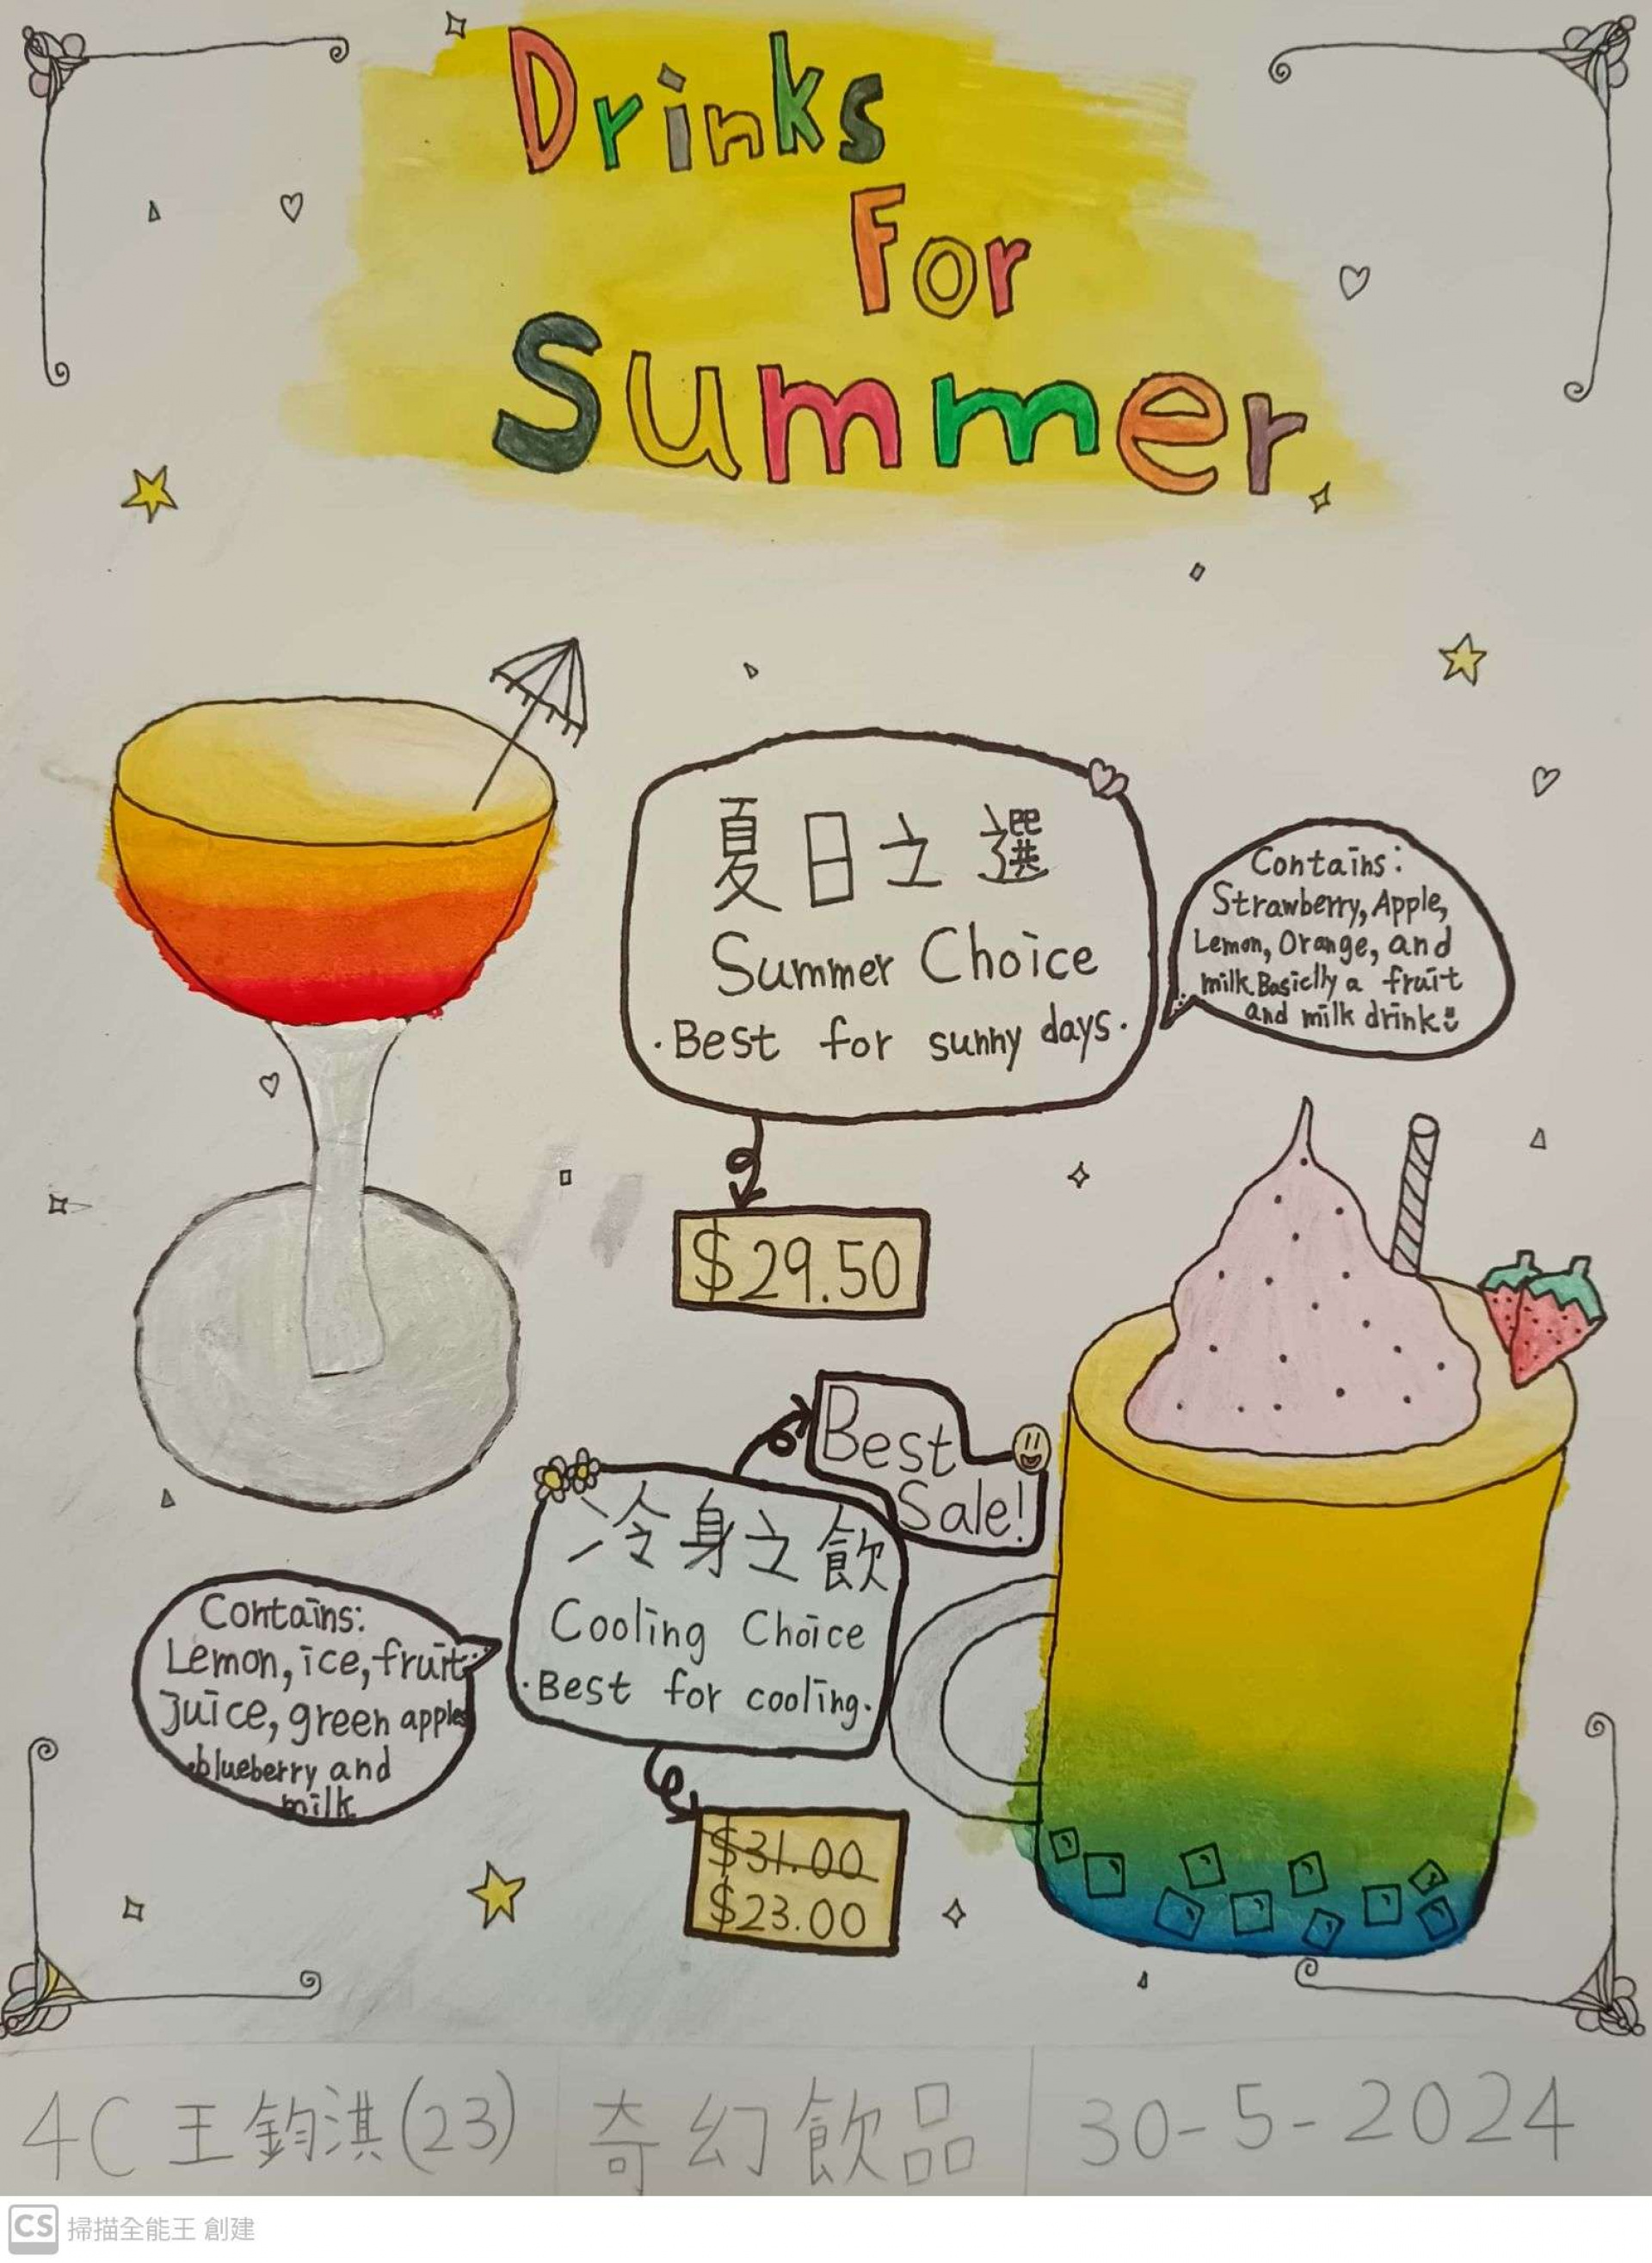 Drinks
For
Summer
夏日之選
Summer Choice
·Best for sunny days·
Contains:
Strawberry, Apple,
Lemon, Orange, and
milk. Basiclly a fruit
and milk drink
$29.50
Best
Sale!
冷身之飲
Cooling Choice
·Best for cooling·
Contains:
Lemon, ice, fruit
juice, green apple
blueberry and
milk
$31.00
$23.00
4C 王鈞淇(23) 奇幻飲品 30-5-2024
CS 掃描全能王 創建